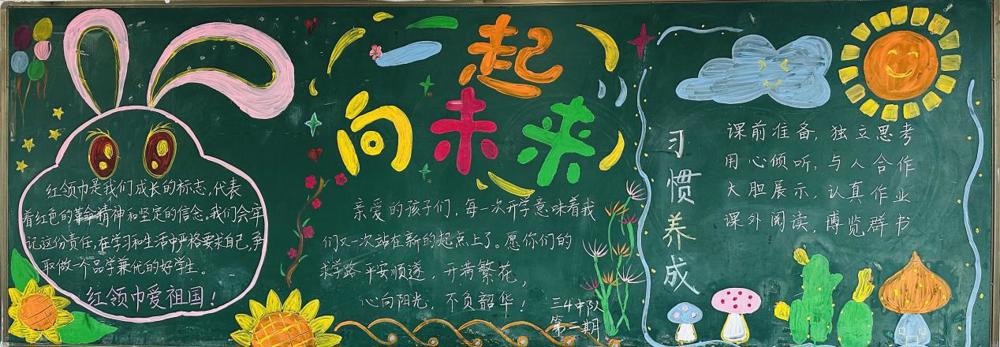 红领巾是我们成长的标志,代表
着红色的革命精神和坚定的信念,我们会牢
记这份责任,在学习和生活中严格要求自己,争
取做一个品学兼优的好学生。
红领巾爱祖国!
一起
向未来
亲爱的孩子们,每一次开学意味着我
们又一次站在新的起点上了。愿你们的
求学路平安顺遂,开满繁花,
心向阳光,不负韶华!
三4中队
第二期
习惯养成
课前准备,独立思考
用心倾听,与人合作
大胆展示,认真作业
课外阅读,博览群书